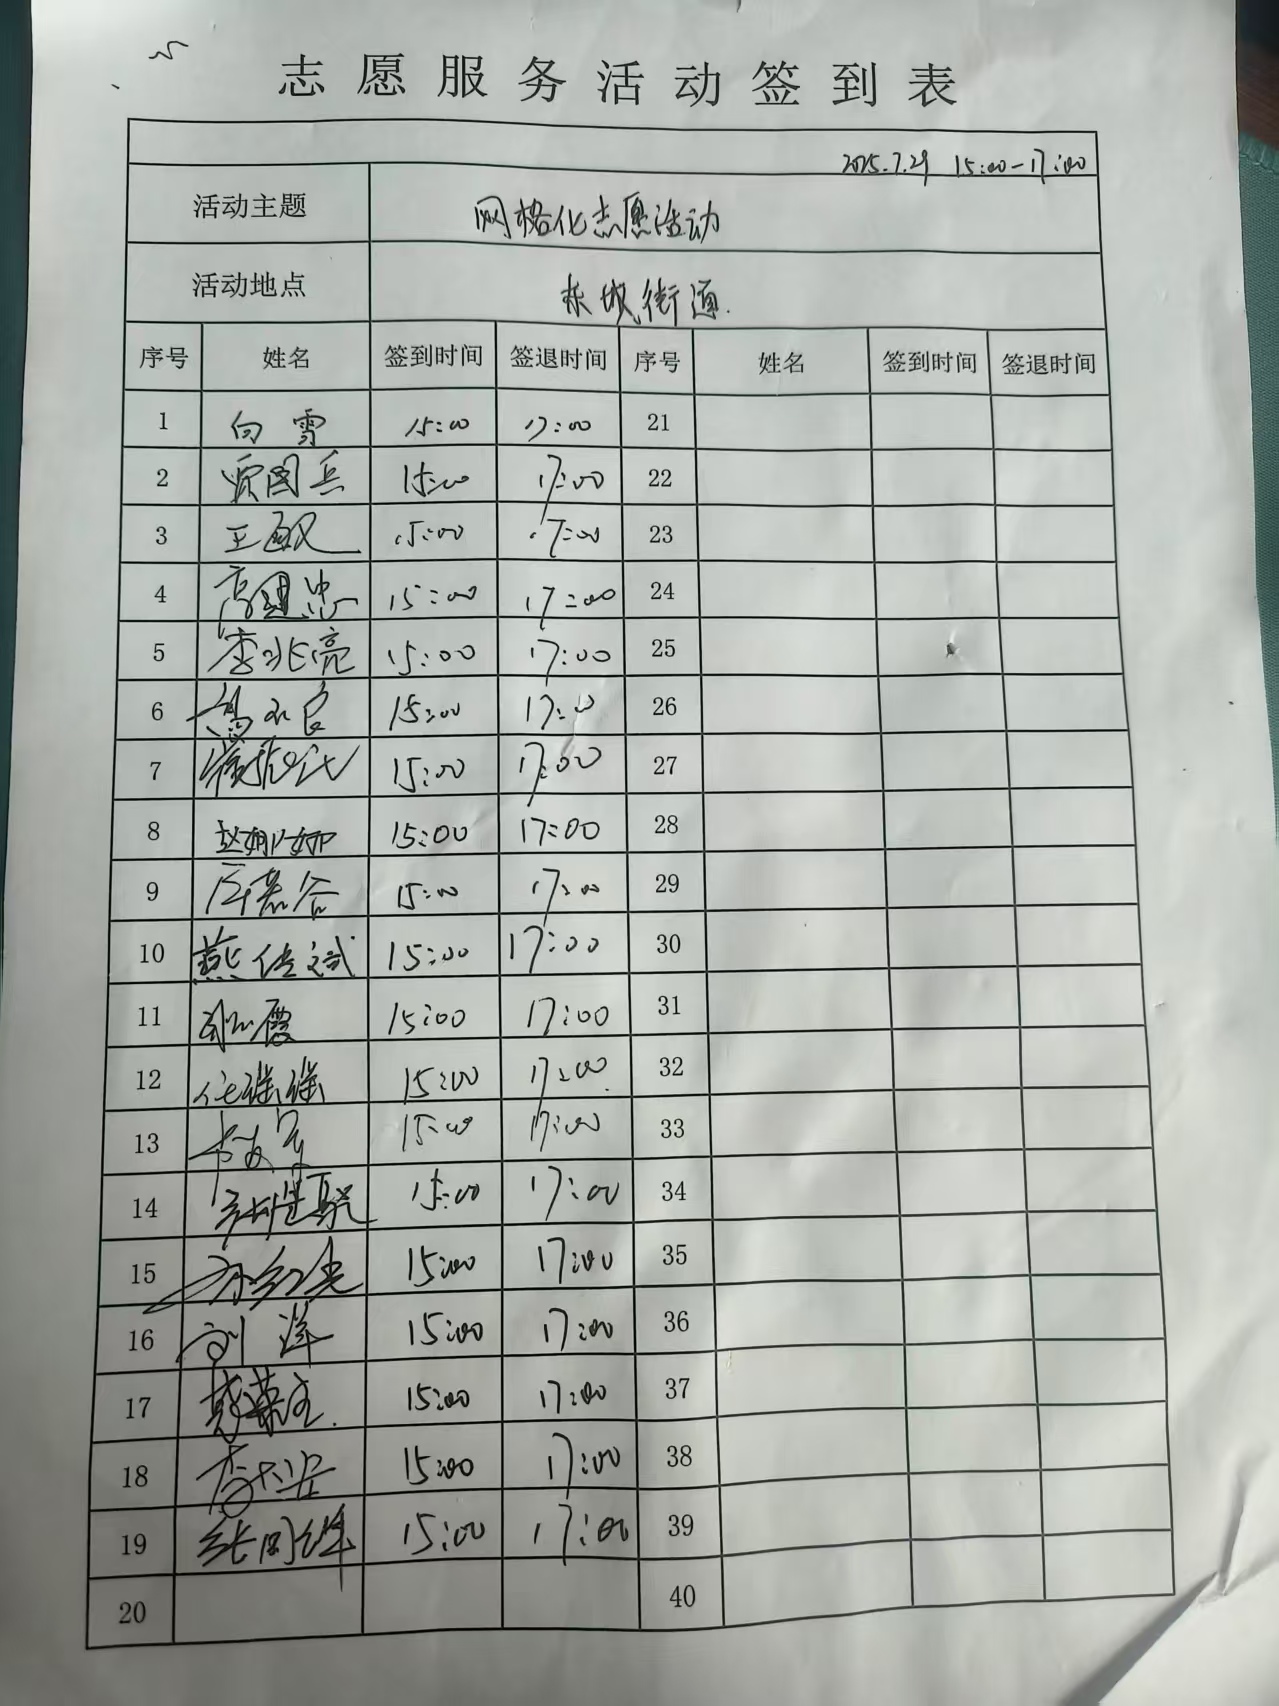 志愿服务活动签到表
2025.7.29 15:00-17:00
活动主题 网格化志愿活动
活动地点 东城街道.
序号 姓名 签到时间 签退时间 序号 姓名 签到时间 签退时间
1 白雪 15:00 17:00 21
2 贾国兵 15:00 17:00 22
3 王敏 15:00 17:00 23
4 高建忠 15:00 17:00 24
5 李兆亮 15:00 17:00 25
6 15:00 17:00 26
7 15:00 17:00 27
8 赵娜娜 15:00 17:00 28
9 15:00 17:00 29
10 燕传斌 15:00 17:00 30
11 15:00 17:00 31
12 任瑞瑞 15:00 17:00 32
13 15:00 17:00 33
14 15:00 17:00 34
15 孙红光 15:00 17:00 35
16 刘洋 15:00 17:00 36
17 15:00 17:00 37
18 15:00 17:00 38
19 15:00 17:00 39
20 40